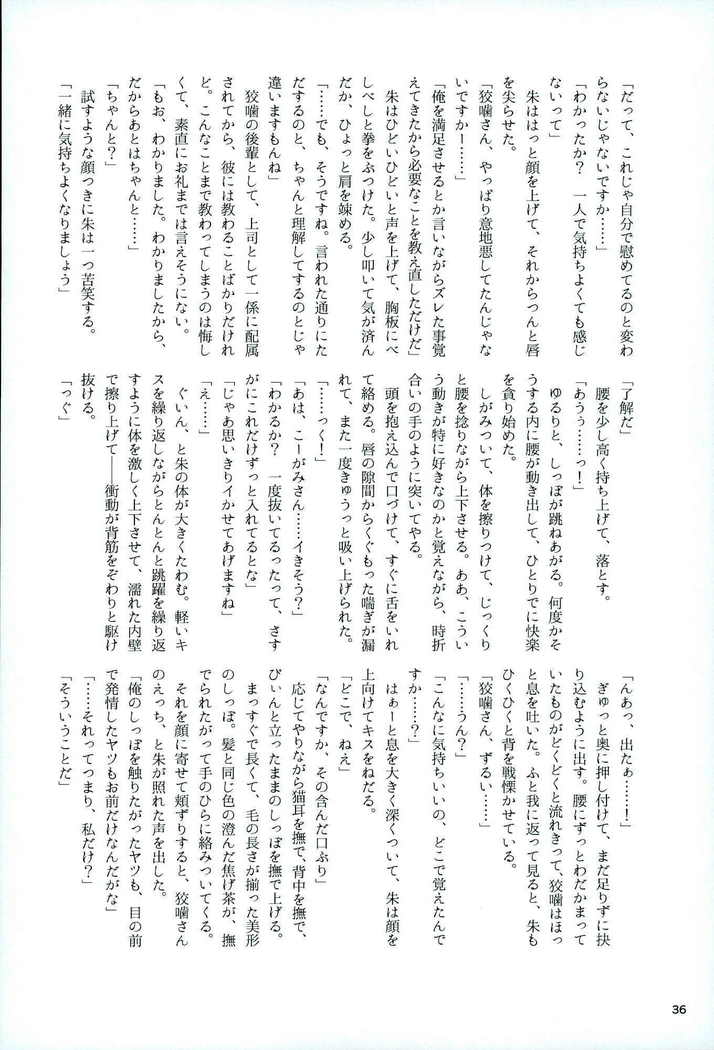 「だって、これじゃ自分で慰めてるのと変わ
らないじゃないですか……」
「わかったか？　一人で気持ちよくても感じ
ないって」
　朱ははっと顔を上げて、それからつんと唇
を尖らせた。
「狡噛さん、やっぱり意地悪してたんじゃな
いですかー……」
「俺を満足させるとか言いながらズレた事覚
えてきたから必要なことを教え直しただけだ」
　朱はひどいひどいと声を上げて、胸板にべ
しべしと拳をぶつけた。少し叩いて気が済ん
だか、ひょっと肩を竦める。
「……でも、そうですね。言われた通りにた
だするのと、ちゃんと理解してするのとじゃ
違いますもんね」
　狡噛の後輩として、上司として一係に配属
されてから、彼には教わることばかりだけれ
ど。こんなことまで教わってしまうのは悔し
くて、素直にお礼までは言えそうにない。
「もお、わかりました。わかりましたから、
だからあとはちゃんと……」
「ちゃんと？」
　試すような顔つきに朱は一つ苦笑する。
「一緒に気持ちよくなりましょう」
「了解だ」
　腰を少し高く持ち上げて、落とす。
「あうぅ……っ！」
　ゆるりと、しっぽが跳ねあがる。何度かそ
うする内に腰が動き出して、ひとりでに快楽
を貪り始めた。
　しがみついて、体を擦りつけて、じっくり
と腰を捻りながら上下させる。ああ、こうい
う動きが特に好きなのかと覚えながら、時折
合いの手のように突いてやる。
　頭を抱え込んで口づけて、すぐに舌をいれ
て絡める。唇の隙間からくぐもった喘ぎが漏
れて、また一度きゅうっと吸い上げられた。
「……っく！」
「あは、こーがみさん……イきそう？」
「わかるか？　一度抜いてるったって、さす
がにこれだけずっと入れてるとな」
「じゃあ思いきりイかせてあげますね」
「え……」
　ぐいん、と朱の体が大きくたわむ。軽いキ
スを繰り返しながらとんとんと跳躍を繰り返
すように体を激しく上下させ、濡れた内壁
で擦り上げて――衝動が背筋をぞわりと駆け
抜ける。
「っぐ」
「んあっ、出たぁ……！」
　ぎゅっと奥に押し付けて、まだ足りずに抉
り込むように出す。腰にずっとわだかまって
いたものがどくどくと流れきって、狡噛はほっ
と息を吐いた。ふと我に返って見ると、朱も
ひくひくと背を戦慄かせている。
「狡噛さん、ずるい……」
「……うん？」
「こんなに気持ちいいの、どこで覚えたんで
すか……？」
　はぁーと息を大きく深くついて、朱は顔を
上向けてキスをねだる。
「どこで、ねえ」
「なんですか、その含んだ口ぶり」
　応じてやりながら猫耳を撫で、背中を撫で、
ぴぃんと立ったままのしっぽを撫で上げる。
　まっすぐで長くて、毛の長さが揃った美形
のしっぽ。髪と同じ色の澄んだ焦げ茶が、撫
でられたがって手のひらに絡みついてくる。
　それを顔に寄せて頬ずりすると、狡噛さん
のえっち、と朱が照れた声を出した。
「俺のしっぽを触りたがったヤツも、目の前
で発情したヤツもお前だけなんだがな」
「……それってつまり、私だけ？」
「そういうことだ」
36